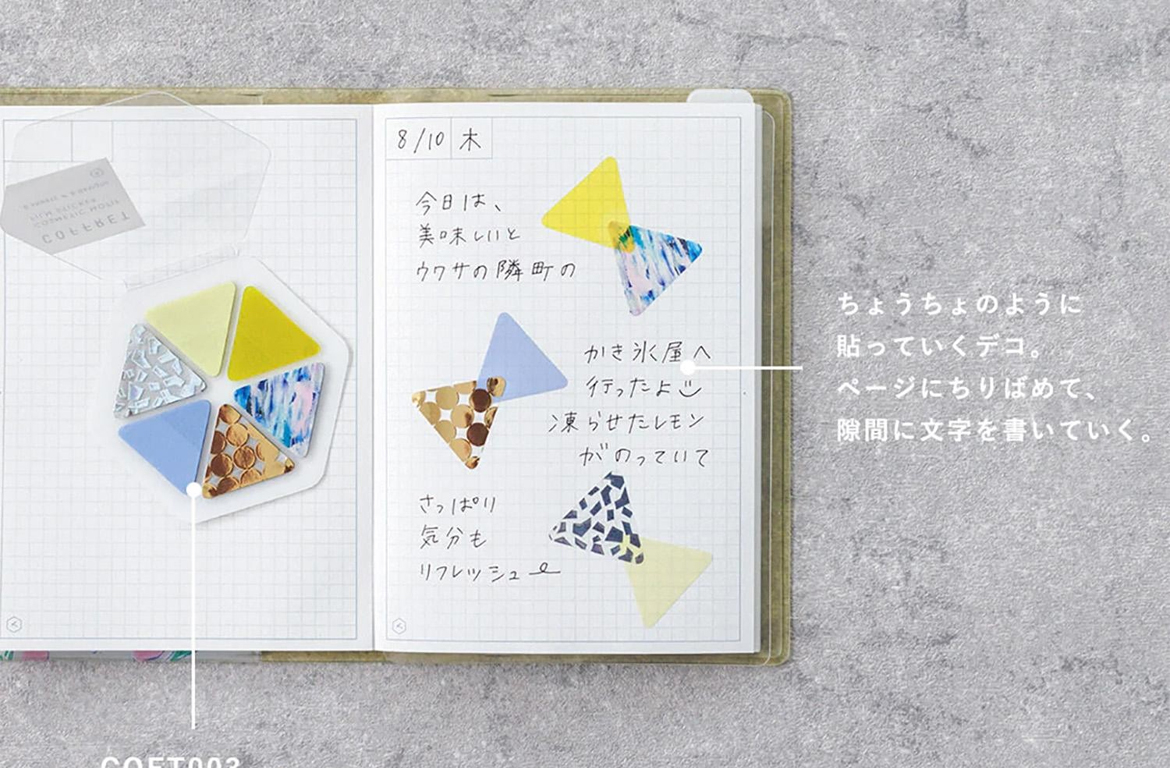 8/10 木
今日は、
美味しいと
ウワサの隣町の
かき氷屋へ
行ったよ
凍らせたレモン
がのっていて
さっぱり
気分も
リフレッシュ
ちょうちょのように
貼っていくデコ。
ページにちりばめて、
隙間に文字を書いていく。
COFFRET
COSMETIC MOTIF